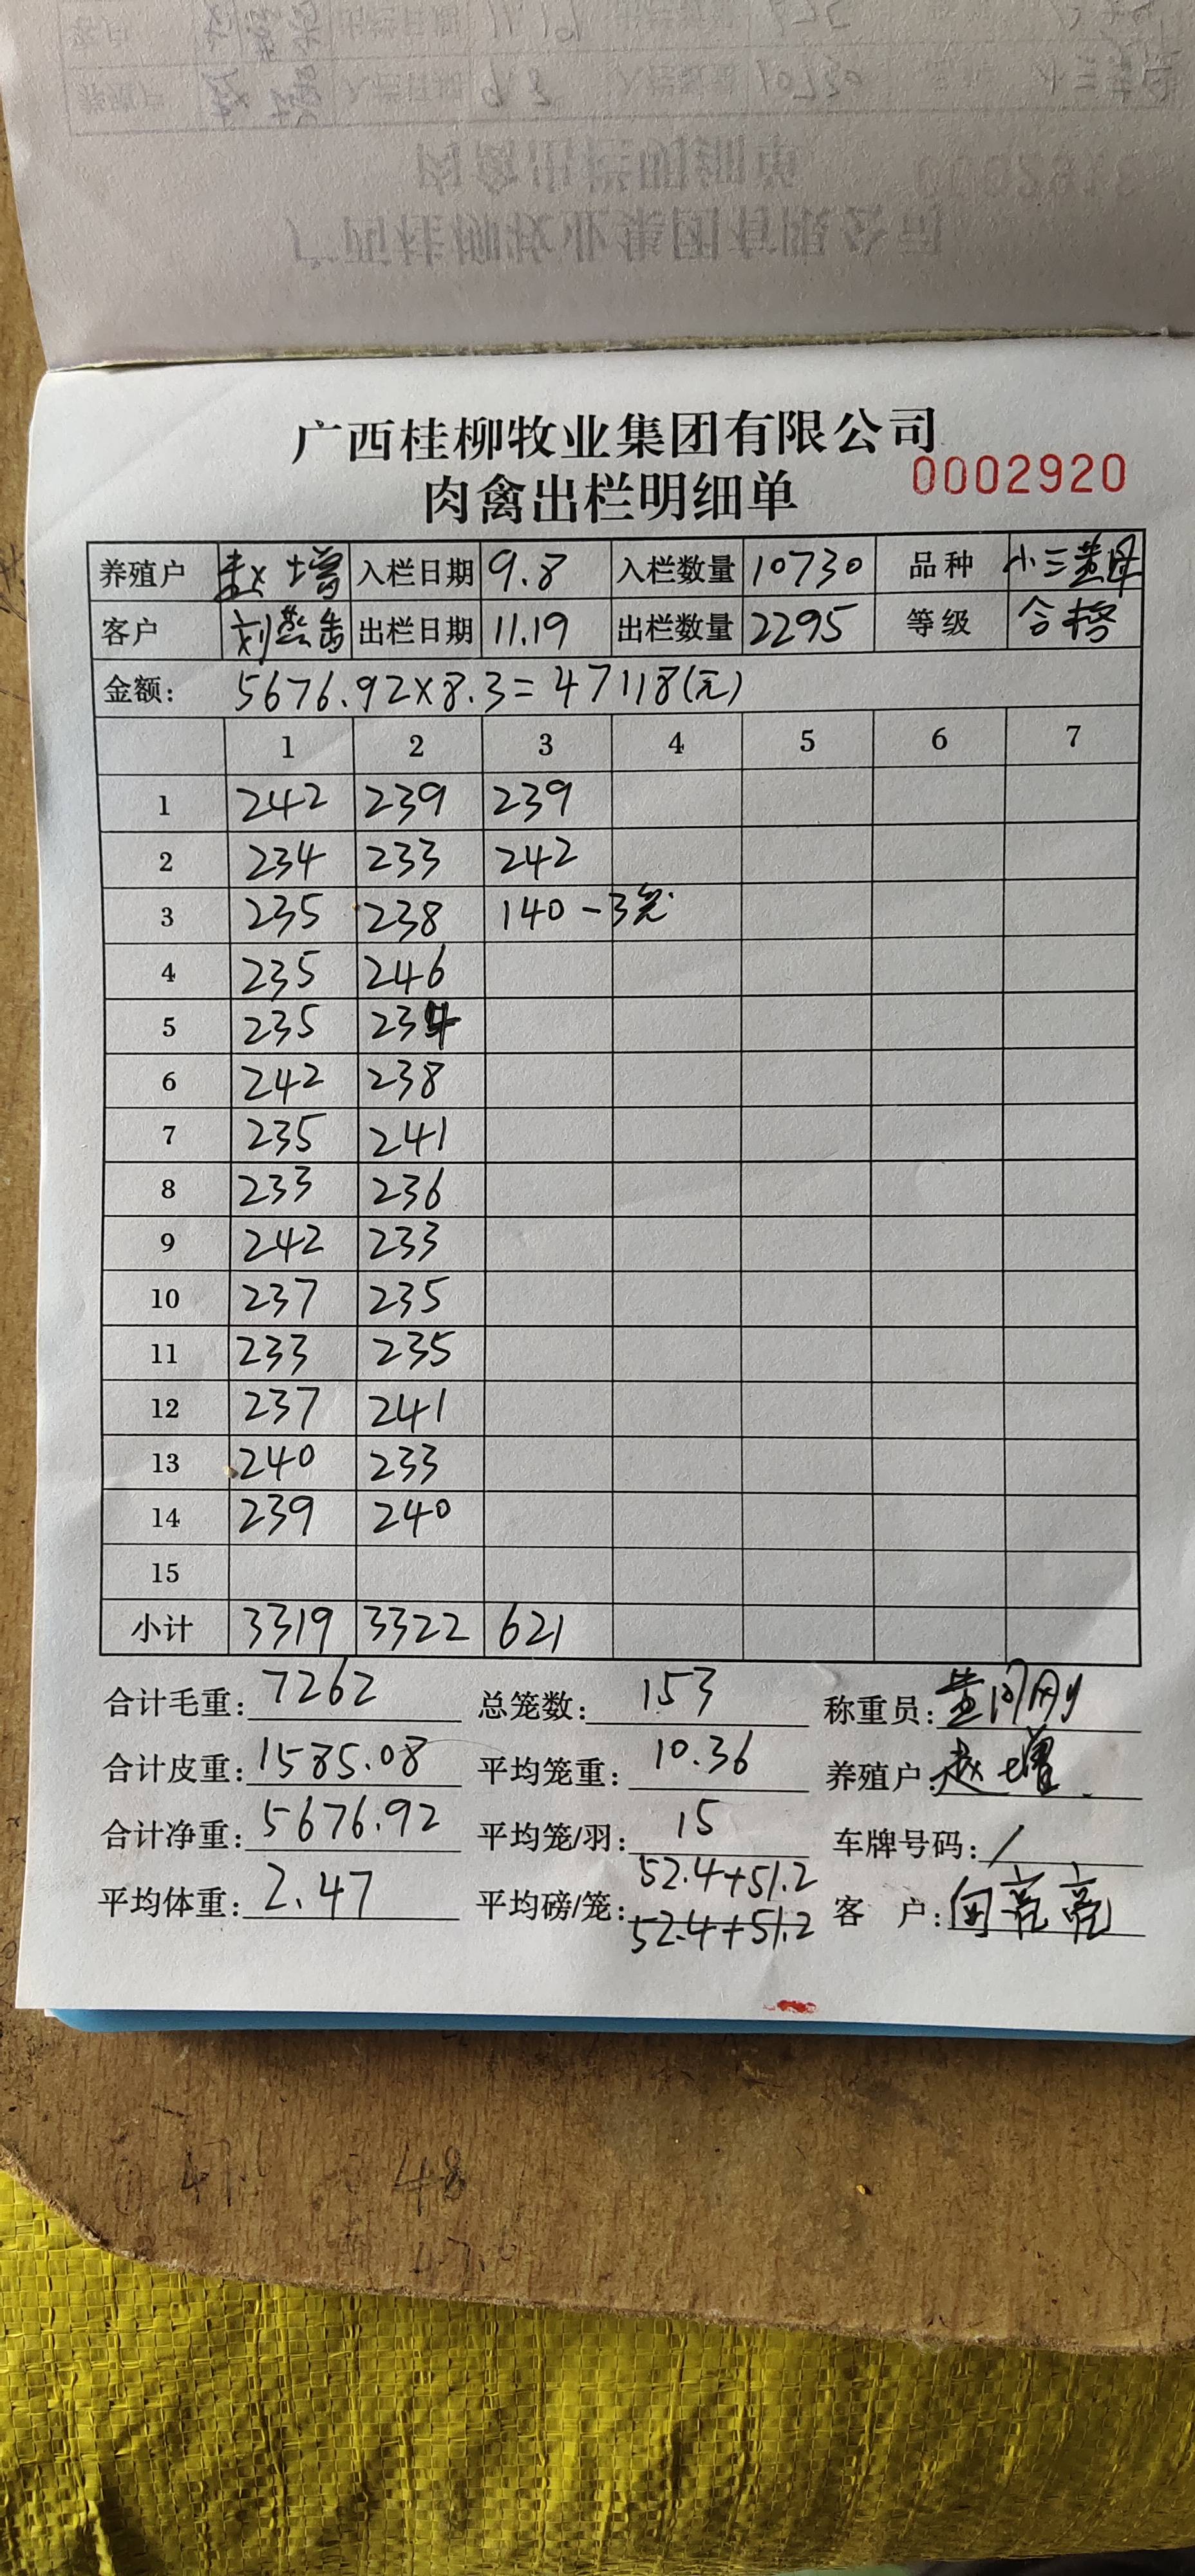 广西桂柳牧业集团有限公司
肉禽出栏明细单 0002920
养殖户 赵增 入栏日期 9.8 入栏数量 10730 品种 小三黄母
客户 出栏日期 11.19 出栏数量 2295 等级 合格
金额: 5676.92×8.3=47118(元)
1 2 3 4 5 6 7
1 242 239 239
2 234 233 242
3 235 238 140-3笼
4 235 246
5 235 234
6 242 238
7 235 241
8 233 236
9 242 233
10 237 235
11 233 235
12 237 241
13 240 233
14 239 240
15
小计 3319 3322 621
合计毛重: 7262 总笼数: 153 称重员:
合计皮重: 1585.08 平均笼重: 10.36 养殖户: 赵增
合计净重: 5676.92 平均笼/羽: 15 车牌号码: /
平均体重: 2.47 平均磅/笼: 52.4+51.2 客 户: 亮亮
52.4+51.2